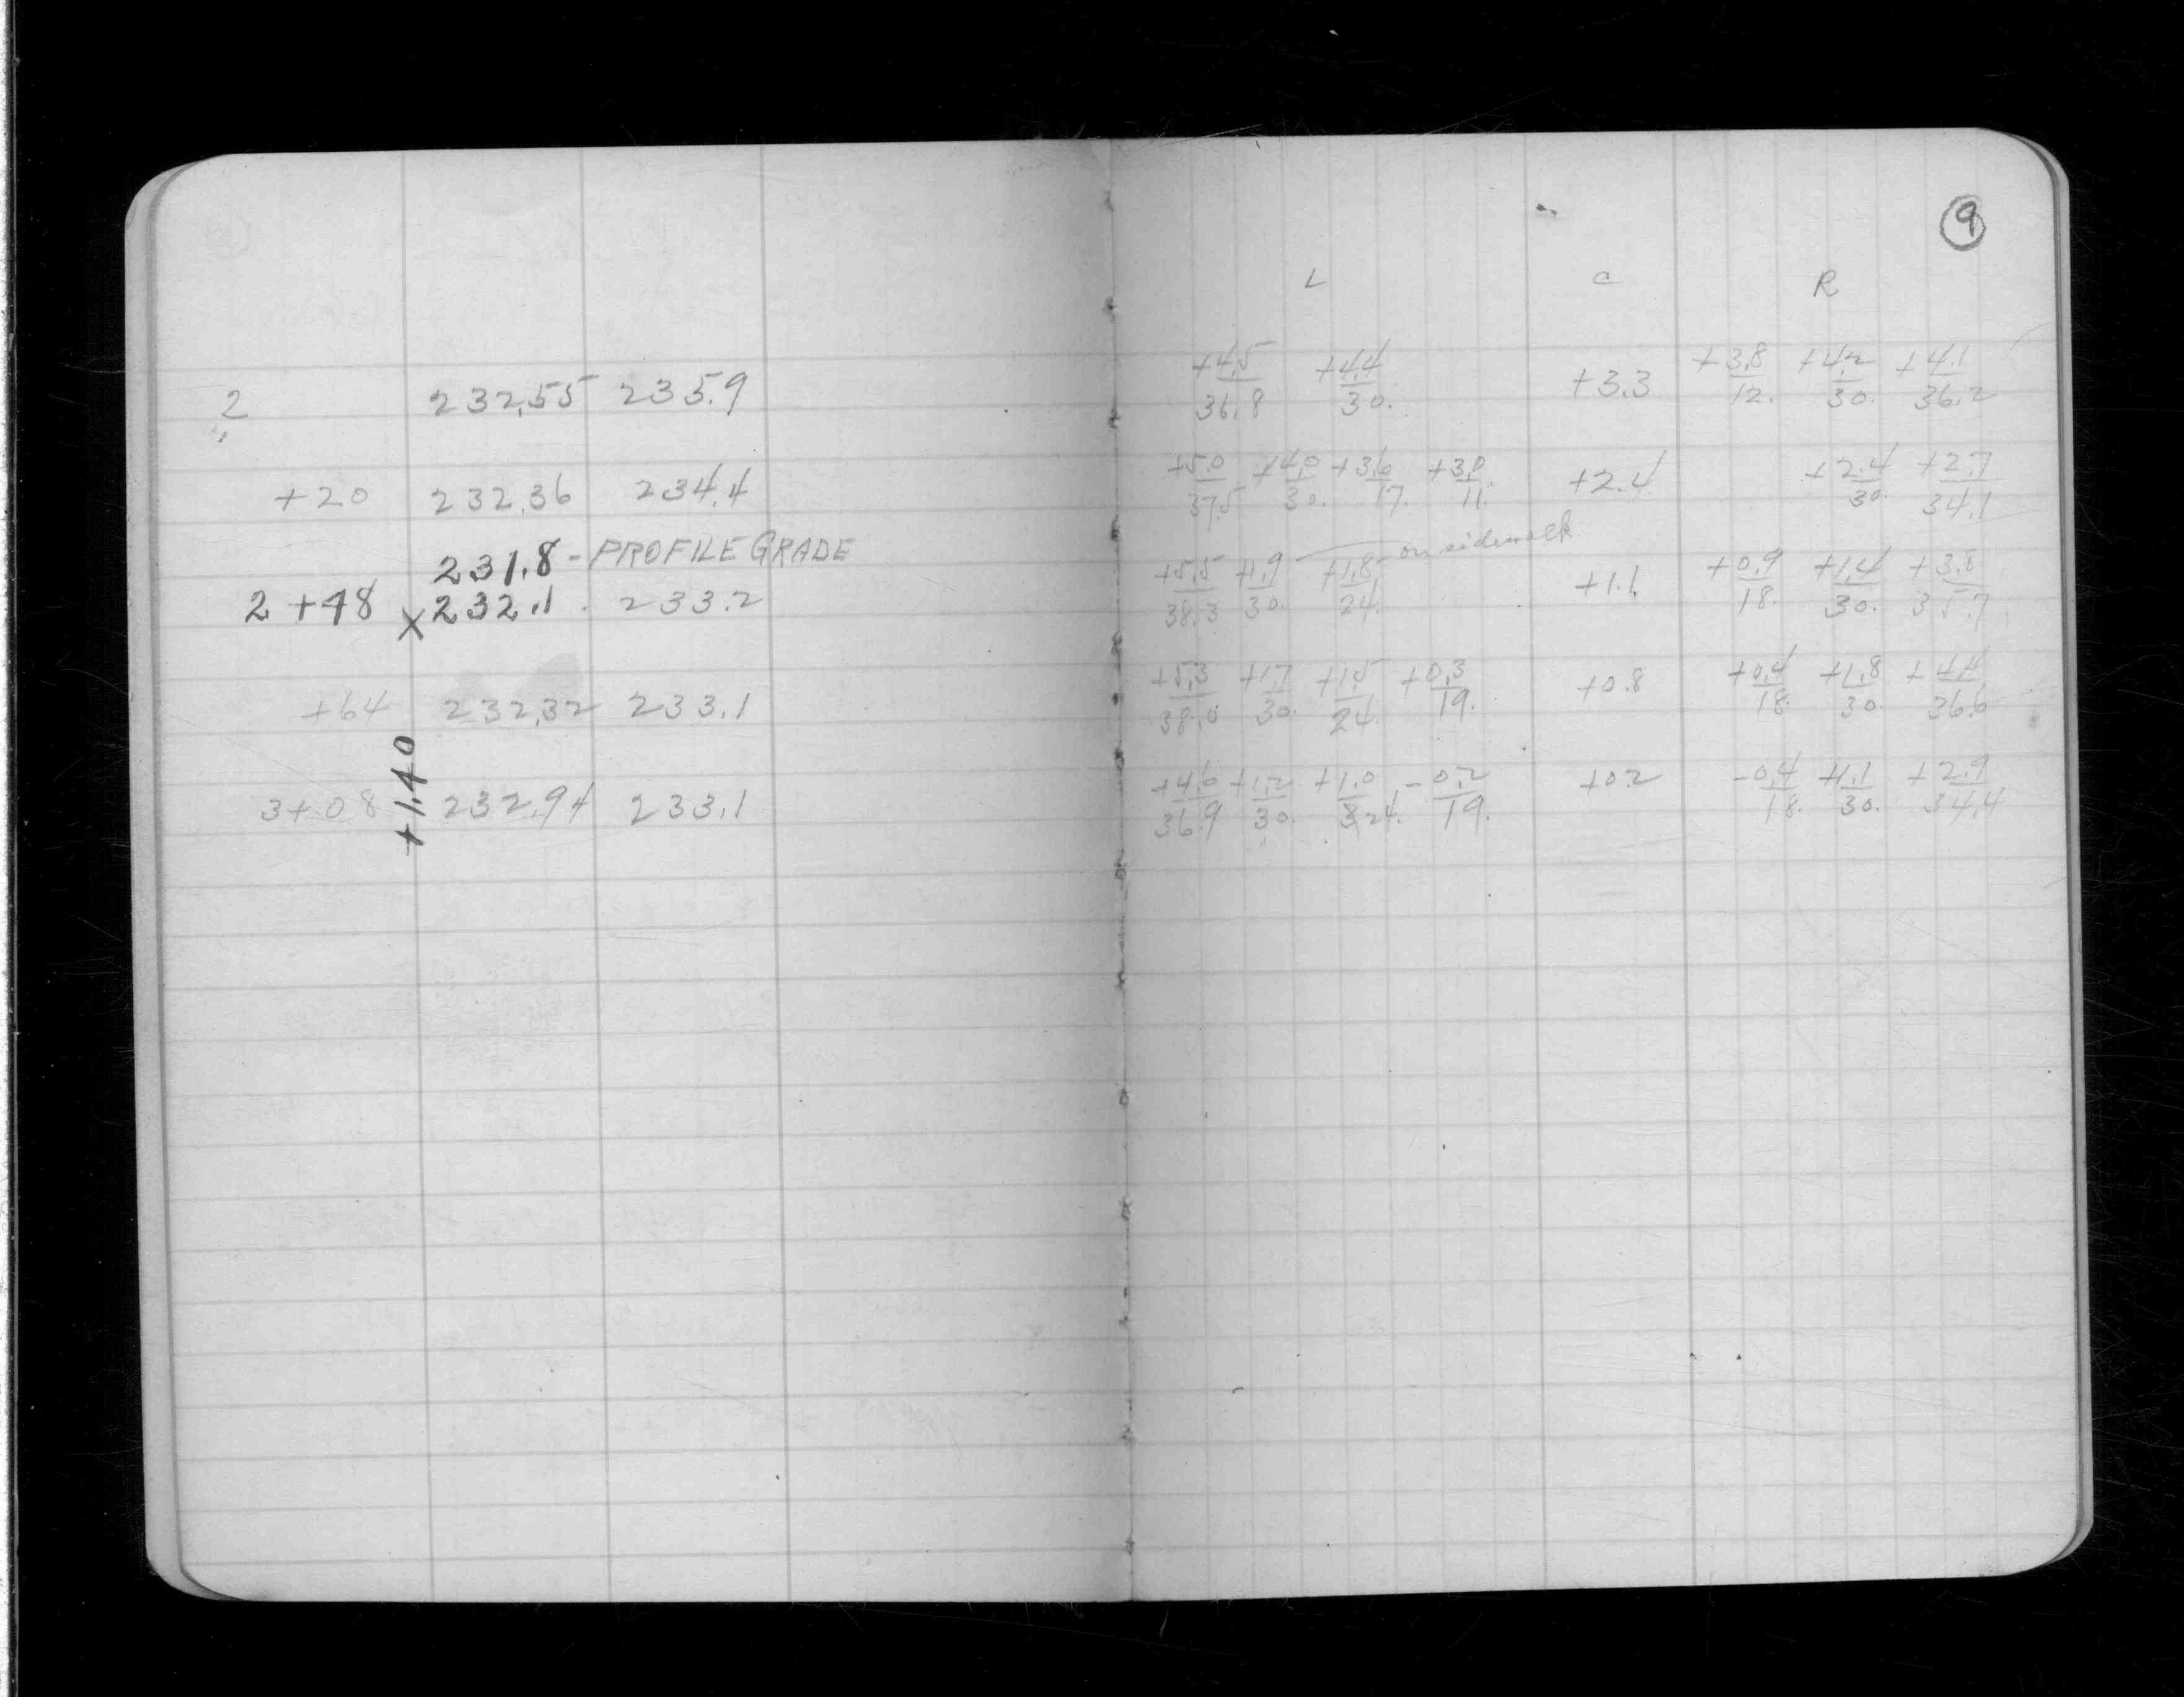 9
L C R
2 232.55 235.9 +4.5/36.8 +4.4/30. +3.3 +3.8/12. +4.2/30. +4.1/36.2
+20 232.36 234.4 +5.0/37.5 +4.0/30. +3.6/17. +3.0/11. +2.4 +2.4/30. +2.7/34.1
231.8 - PROFILE GRADE
on sidewalk
2+48 x232.1 233.2 +5.5/38.3 +1.9/30. +1.8/24. +1.1 +0.9/18. +1.4/30. +3.8/35.7
+64 232.32 233.1 +5.3/38.0 +1.7/30. +1.5/24. +0.3/19. +0.8 +0.4/18. +1.8/30. +4.4/36.6
+1.40
3+08 232.94 233.1 +4.6/36.9 +1.2/30. +1.0/24. -0.2/19. +0.2 -0.4/18. +1.1/30. +2.9/34.4